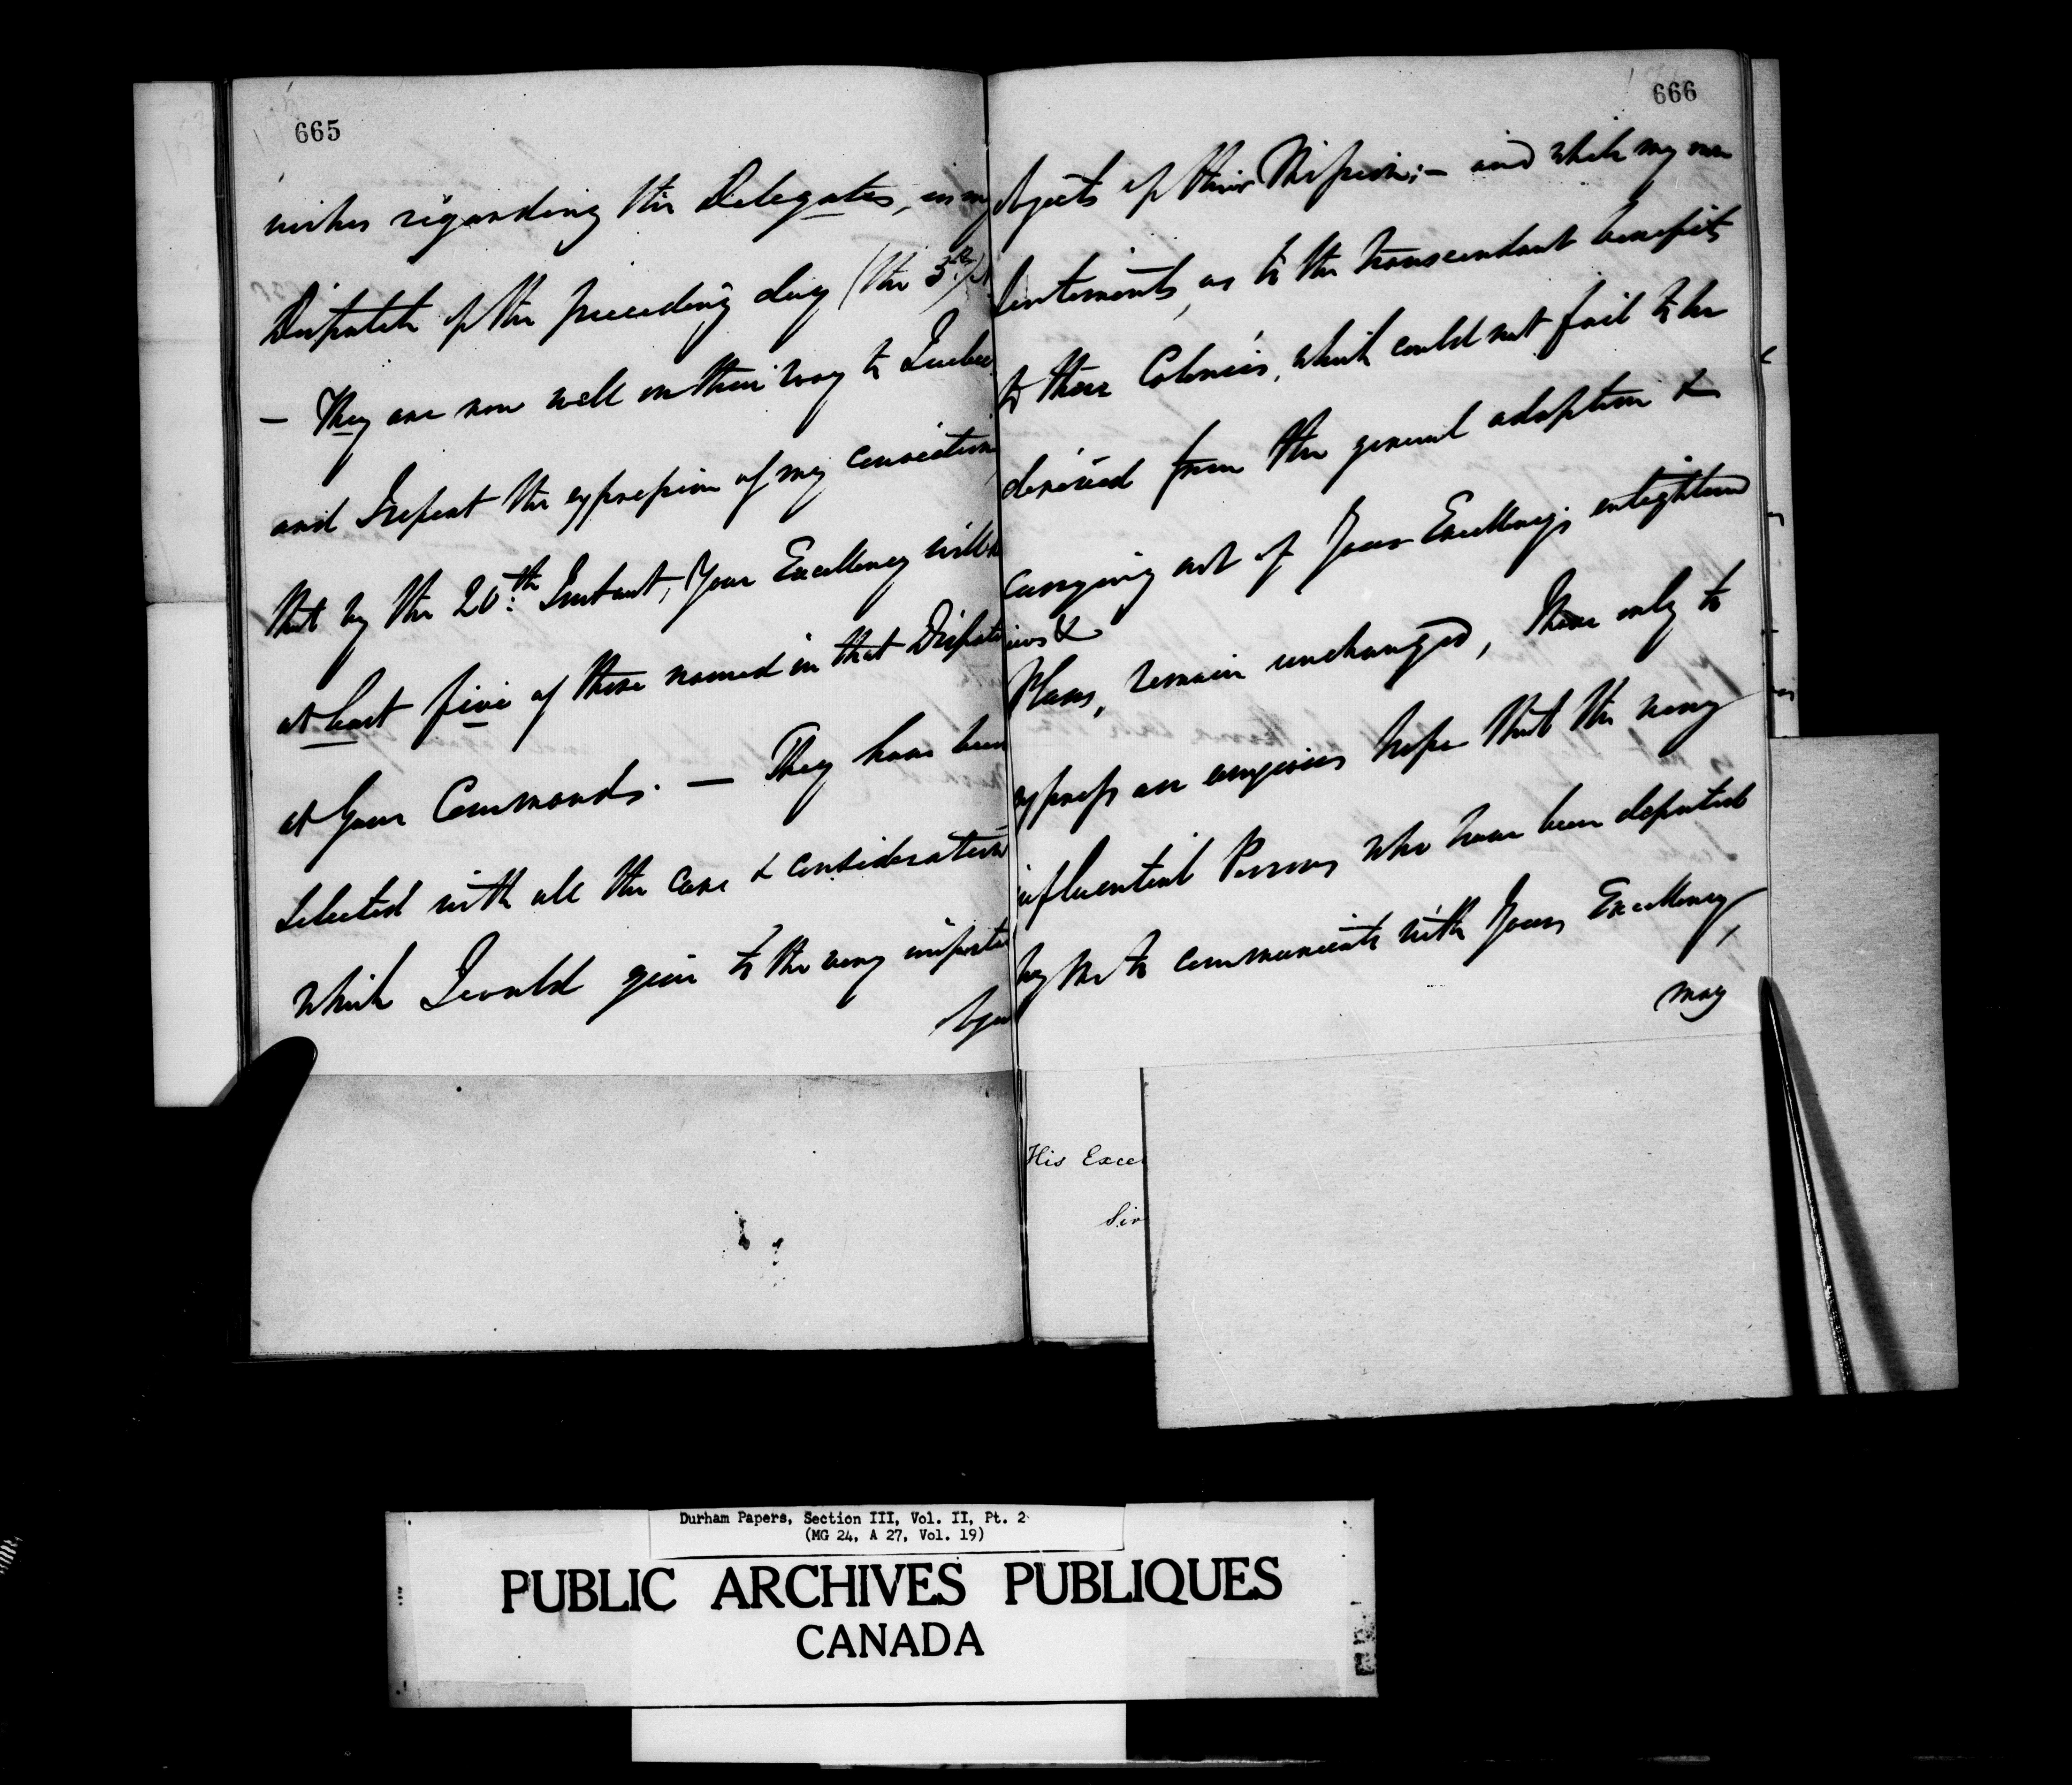 665
wishes regarding the Delegates, in my
Dispatch of the preceding day (the 3rd)
— They are now well on their way to Quebec
and I repeat the expression of my conviction
that by the 20th Instant, Your Excellency will
at least five of those named in that Dispatch
at Your Commands. — They have been
selected with all the care & consideration
which I could give to the very important
objects
666
objects of their Mission; — and while my own
Sentiments, as to the transcendant benefits
to these Colonies, which could not fail to be
derived from the general adoption &
carrying out of Your Excellency's enlightened
views &
Plans, remain unchanged, I have only to
express an anxious hope that the very
influential Persons who have been deputed
by me to communicate with Your Excellency,
may
His Excel
Sir
Durham Papers, Section III, Vol. II, Pt. 2
(MG 24, A 27, Vol. 19)
PUBLIC ARCHIVES PUBLIQUES
CANADA